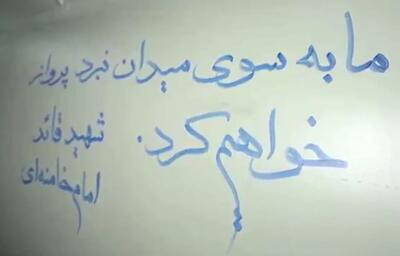 ما به سوی میدان نبرد پرواز
خواهیم کرد.
شهید قائد
امام خامنه‌ای